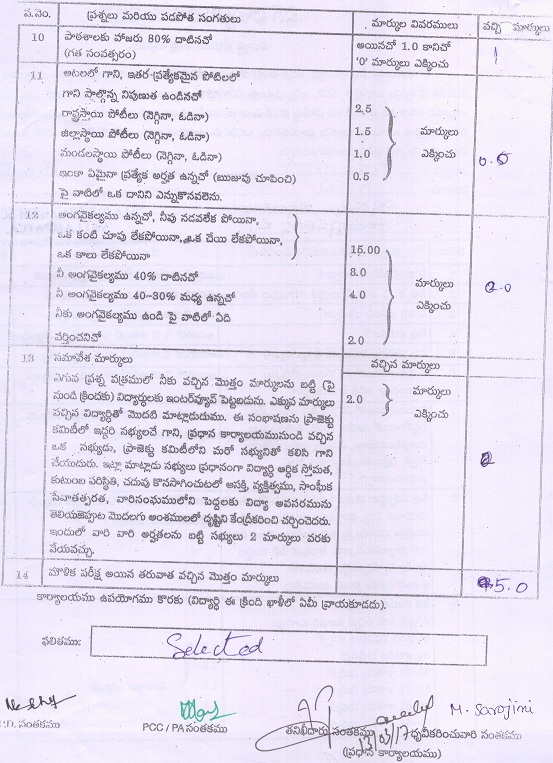 ప.నెం. ప్రశ్నలు మరియు పడపోత సంగతులు మార్కుల వివరములు వచ్చి మార్కులు
10 పాఠశాలకు హాజరు 80% దాటినచో అయినచో 1.0 కానిచో 1
(గత సంవత్సరం) '0' మార్కులు ఎక్కించు
11 ఆటలలో గాని, ఇతర ప్రత్యేకమైన పోటిలలో
గాని పాల్గొన్న నిపుణుత ఉండినచో
రాష్ట్రస్తాయి పోటీలు (నెగ్గినా, ఓడినా) 2.5 మార్కులు
జిల్లాస్తాయి పోటీలు (నెగ్గినా, ఓడినా) 1.5 ఎక్కించు
మండలస్థాయి పోటీలు (నెగ్గినా, ఓడినా) 1.0 0.5
ఇంకా ఏమైనా ప్రత్యేక అర్హత ఉన్నచో (ఋజువు చూపించి) 0.5
పై వాటిలో ఒక దానిని ఎన్నుకొనవలెను.
12 అంగవైకల్యము ఉన్నచో, నీవు నడవలేక పోయినా,
ఒక కంటి చూపు లేకపోయినా, ఒక చేయి లేకపోయినా,
ఒక కాలు లేకపోయినా 15.00
నీ అంగవైకల్యము 40% దాటినచో 8.0 మార్కులు
నీ అంగవైకల్యము 40-30% మధ్య ఉన్నచో 4.0 ఎక్కించు
నీకు అంగవైకల్యము ఉండి పై వాటిలో ఏది
వర్తించనిచో 2.0
13 సమావేశ మార్కులు వచ్చిన మార్కులు
ఎగువ ప్రశ్న పత్రములో నీకు వచ్చిన మొత్తం మార్కులను బట్టి (పై 2.0 మార్కులు
నుండి క్రిందకు) విద్యార్థులకు ఇంటర్వ్యూవ్ పెట్టబడును. ఎక్కువ మార్కులు ఎక్కించు
వచ్చిన విద్యార్థితో మొదటి మాట్లాడుదుము. ఈ సంభాషణను ప్రాజెక్టు
కమిటీలో ఇద్దరి సభ్యులచే గాని, ప్రధాన కార్యాలయమునుండి వచ్చిన
ఒక సభ్యుడు, ప్రాజెక్టు కమిటీలోని మరో సభ్యునితో కలిసి గాని
చేయుదురు. ఇట్లా మాట్లాడు సభ్యులు ప్రధానంగా విద్యార్థి ఆర్థిక స్తోమత,
కుటుంబ పరిస్థితి, చదువు కొనసాగించుటలో ఆసక్తి, వ్యక్తిత్వము, సాంఘీక
సేవాతత్పరత, వారిసంఘములోని పెద్దలకు విద్యా అవసరమును
తెలియజెప్పుట మొదలగు అంశములలో దృష్టిని కేంద్రీకరించి చర్చించెదరు.
ఇందులో వారి వారి అర్హతలను బట్టి సభ్యులు 2 మార్కులు వరకు
వేయవచ్చు.
14 మౌళిక పరీక్ష అయిన తరువాత వచ్చిన మొత్తం మార్కులు
కార్యాలయము ఉపయోగము కొరకు (విద్యార్థి ఈ క్రింది ఖాళీలో ఏమీ వ్రాయకూడదు).
ఫలితము: Selected
M. Sarojini
P.D. సంతకము PCC / PA సంతకము తనిఖీదారు సంతకము ధృవీకరించువారి సంతకము
(ప్రధాన కార్యాలయము)